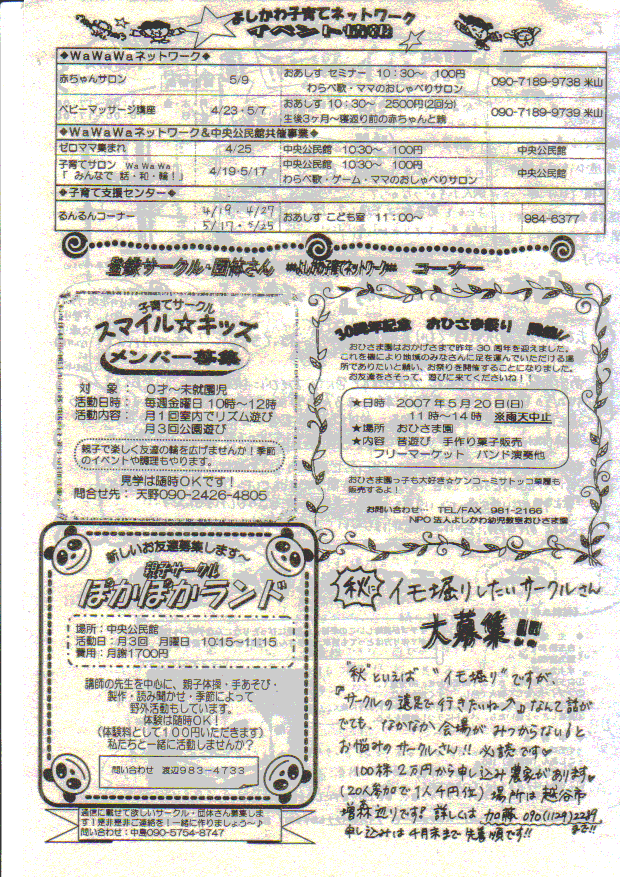 よしかわ子育てネットワーク
イベント情報
◆WaWaWaネットワーク◆
赤ちゃんサロン 5/9 おあしす セミナー 10:30～ 100円 わらべ歌・ママのおしゃべりサロン 090-7189-9738 米山
ベビーマッサージ講座 4/23・5/7 おあしす 10:30～ 2500円(2回分) 生後3ヶ月～寝返り前の赤ちゃんと親 090-7189-9739 米山
◆WaWaWaネットワーク&中央公民館共催事業◆
ゼロママ集まれ 4/25 中央公民館 10:30～ 100円 中央公民館
子育てサロン Wa Wa Wa 「みんなで 話・和・輪!」 4/19・5/17 中央公民館 10:30～ 100円 わらべ歌・ゲーム・ママのおしゃべりサロン 中央公民館
◆子育て支援センター◆
るんるんコーナー 4/19・4/27 5/17・5/25 おあしす こども室 11:00～ 984-6377
登録サークル・団体さん よしかわ子育てネットワーク コーナー
子育てサークル
スマイル☆キッズ
メンバー募集
対 象: 0才～未就園児
活動日時: 毎週金曜日 10時～12時
活動内容: 月1回室内でリズム遊び
月3回公園遊び
親子で楽しく友達の輪を広げませんか!季節
のイベントや調理もやります。
見学は随時OKです!
問合せ先: 天野090-2426-4805
30周年記念 おひさま祭り 開催!
おひさま園はおかげさまで昨年30周年を迎えました。
これを機により地域のみなさんに足を運んでいただける場
所でありたいと願い、お祭りを開催することになりました。
お友達をさそって、遊びに来てくださいね!!
★日時 2007年5月20日(日)
11時～14時 ※雨天中止
★場所 おひさま園
★内容 昔遊び 手作り菓子販売
フリーマーケット バンド演奏他
おひさま園っ子も大好き☆ケンコーミサトッコ草履も
販売するよ!
お問い合わせ… TEL/FAX 981-2166
NPO法人よしかわ幼児教室おひさま園
新しいお友達募集します～
親子サークル
ぽかぽかランド
場所:中央公民館
活動日:月3回 月曜日 10:15～11:15
費用:月謝1700円
講師の先生を中心に、親子体操・手あそび・
製作・読み聞かせ・季節によって
野外活動もしています。
体験は随時OK!
(体験料として100円いただきます)
私たちと一緒に活動しませんか?
問い合わせ 渡辺983-4733
通信に載せて欲しいサークル・団体さん募集しま
す!是非是非ご連絡を!一緒に作りましょう～♪
問い合わせ:中島090-5754-8747
秋に イモ堀りしたいサークルさん
大募集!!
"秋"といえば "イモ堀り"ですが、
『サークルの遠足で行きたいね♪』なんて話が
でても、なかなか会場がみつからない!と
お悩みのサークルさん!! 必読です♡
100株2万円から申し込み農家があります♡
(20人参加で1人千円位) 場所は越谷市
増森辺りです! 詳しくは 加藤 090(1129)2289
申し込みは4月末まで 先着順です!! まで!!